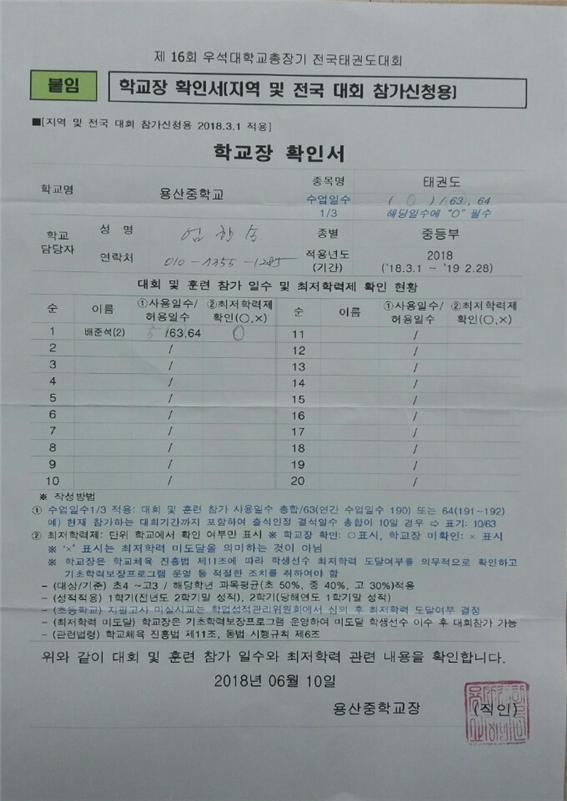 제 16회 우석대학교총장기 전국태권도대회
붙임 학교장 확인서(지역 및 전국 대회 참가신청용)
■[지역 및 전국 대회 참가신청용 2018.3.1 적용]
학교장 확인서
학교명 용산중학교 종목명 태권도
수업일수 1/3 ( 0 ) / 63, 64
해당일수에 "O" 필수
학교 담당자 성 명 종별 중등부
연락처 010-
적용년도 (기간) 2018
('18.3.1 ~ '19 2.28)
대회 및 훈련 참가 일수 및 최저학력제 확인 현황
순 이름 ①사용일수/허용일수 ②최저학력제 확인(○,×) 순 이름 ①사용일수/허용일수 ②최저학력제 확인(○,×)
1 배준석(2) /63,64 O 11 /
2 / 12 /
3 / 13 /
4 / 14 /
5 / 15 /
6 / 16 /
7 / 17 /
8 / 18 /
9 / 19 /
10 / 20 /
※ 작성방법
① 수업일수1/3 적용: 대회 및 훈련 참가 사용일수 총합/63(연간 수업일수 190) 또는 64(191~192)
예) 현재 참가하는 대회기간까지 포함하여 출석인정 결석일수 총합이 10일 경우 ⇨ 표기: 10/63
② 최저학력제: 단위 학교에서 확인 여부만 표시 ※ 학교장 확인: ○표시, 학교장 미확인: × 표시
※ '×' 표시는 최저학력 미도달을 의미하는 것이 아님
※ 학교장은 학교체육 진흥법 제11조에 따라 학생선수 최저학력 도달여부를 의무적으로 확인하고
기초학력보장프로그램 운영 등 적절한 조치를 취하여야 함
- (대상/기준) 초4 ~고3 / 해당학년 과목평균(초 50%, 중 40%, 고 30%)적용
- (성적적용) 1학기(전년도 2학기말 성적), 2학기(당해연도 1학기말 성적)
- (초등학교) 지필고사 미실시교는 학업성적관리위원회에서 심의 후 최저학력 도달여부 결정
- (최저학력 미도달) 학교장은 기초학력보장프로그램 운영하여 미도달 학생선수 이수 후 대회참가 가능
- (관련법령) 학교체육 진흥법 제11조, 동법 시행규칙 제6조
위와 같이 대회 및 훈련 참가 일수와 최저학력 관련 내용을 확인합니다.
2018년 06월 10일
용산중학교장 (직인)